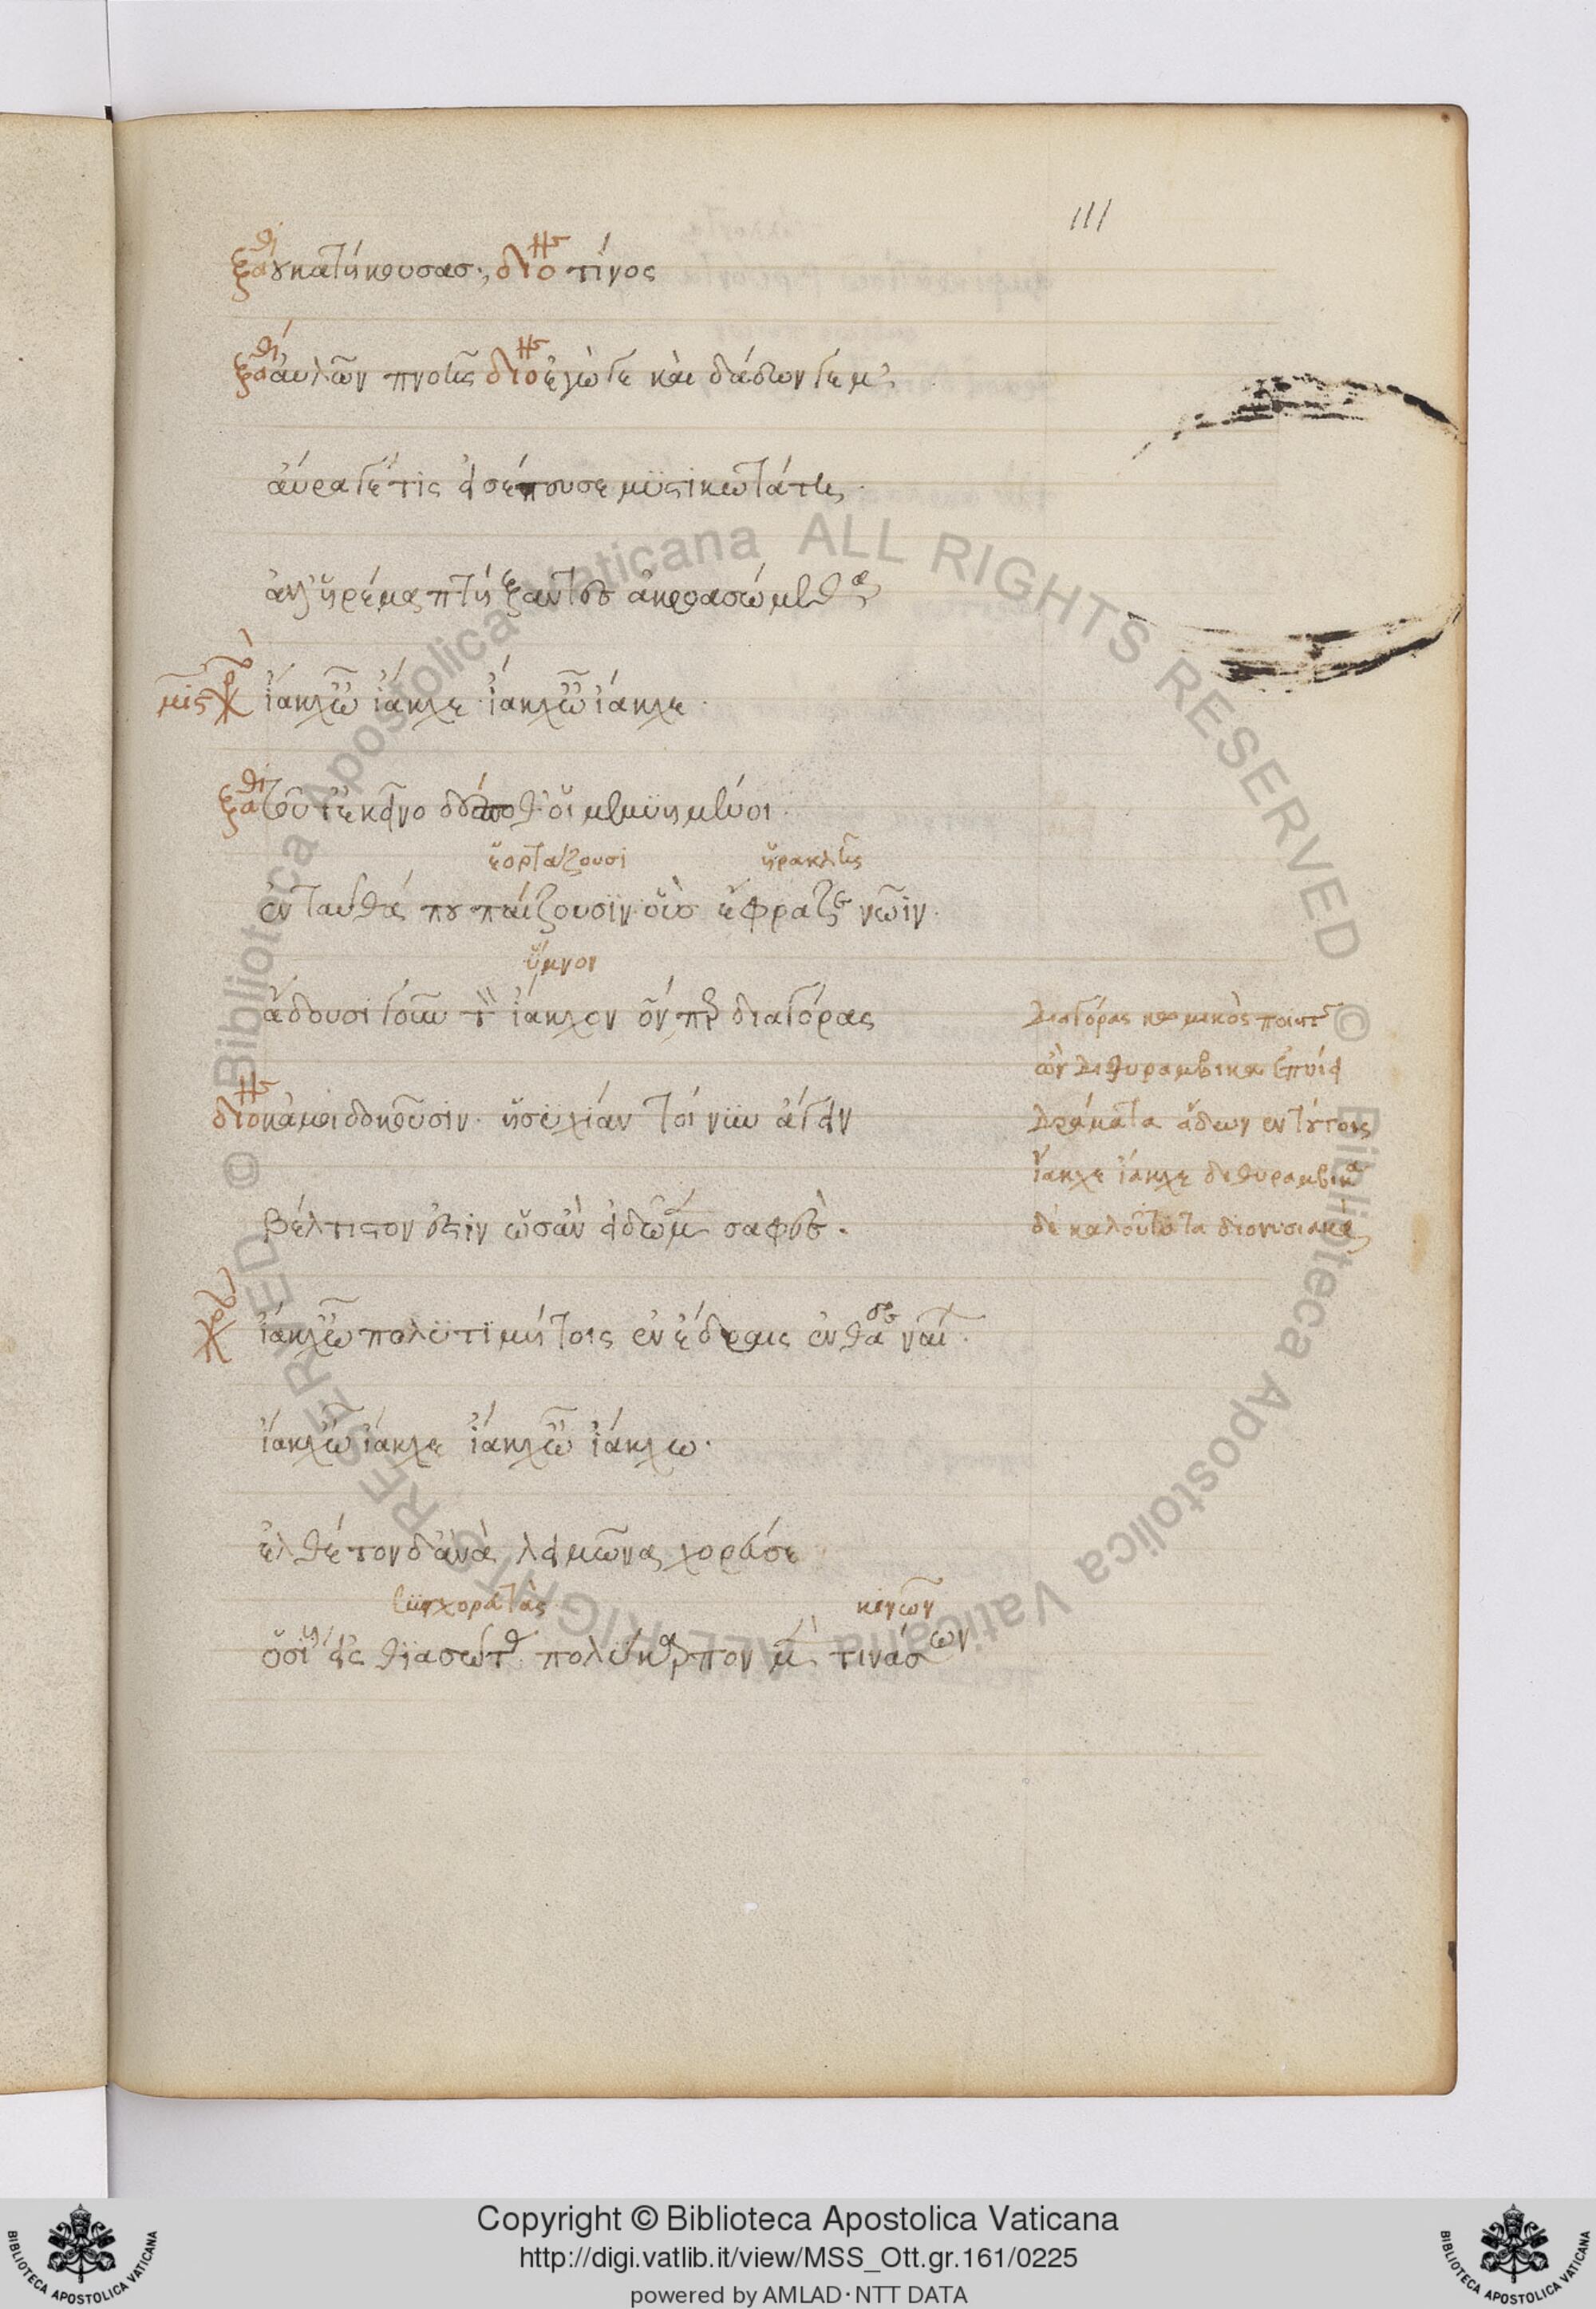 111
ξαθ οὐ κατήκουσας; διον τίνος
ξαθ αὐλῶν πνοῆς διον ἔγωγε καὶ δάδων γέ μ'
αὔρα γέ τις εἰσέπνευσε μυστικωτάτης
ἀλλ' ἠρέμα πτήξαντες ἀκροασώμεθα
μυς χορ ἴακχ' ὦ ἴακχε ἴακχ' ὦ ἴακχε
ξαθ τοῦτ' ἔστ' ἐκεῖνο ὦ δέσποθ' οἱ μεμυημένοι
ἑορτάζουσι ἡρακλῆς
ἐνταῦθά που παίζουσιν οὓς ἔφραζε νῶϊν
ὕμνον
ᾄδουσι γοῦν τὸν ἴακχον ὅνπερ διαγόρας
διαγόρας κωμικὸς ποιητὴς
ὢν διθυραμβικὰ ἐποίει
διον κἀμοὶ δοκοῦσιν. ἡσυχίαν τοίνυν ἄγειν
δράματα ᾄδων ἐν τούτοις
ἴακχε ἴακχε διθυραμβικὰ
βέλτιστόν ἐστιν ὡς ἂν εἰδῶμεν σαφῶς.
δὲ καλοῦνται τὰ διονυσιακὰ
χορ ἴακχ' ὦ πολυτιμήτοις ἐν ἕδραις ἐνθάδε ναίων.
ἴακχ' ὦ ἴακχε ἴακχ' ὦ ἴακχω.
ἐλθὲ τόνδ' ἀνὰ λειμῶνα χορεύσων
συγχορευτὰς κινῶν
ὁσίους εἰς θιασώτας πολύκαρπον μὲν τινάσσων
Copyright © Biblioteca Apostolica Vaticana
http://digi.vatlib.it/view/MSS_Ott.gr.161/0225
powered by AMLAD · NTT DATA
© Biblioteca Apostolica Vaticana ALL RIGHTS RESERVED
© Biblioteca Apostolica Vaticana ALL RIGHTS RESERVED
BIBLIOTECA APOSTOLICA VATICANA
BIBLIOTECA APOSTOLICA VATICANA